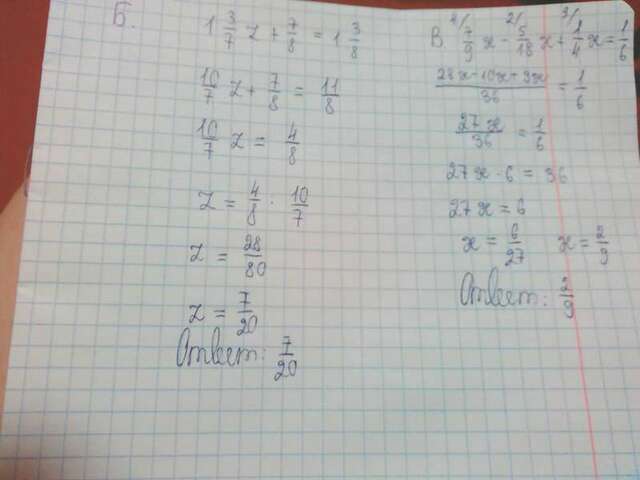 Б.
1 3/7 z + 7/8 = 1 3/8
10/7 z + 7/8 = 11/8
10/7 z = 4/8
z = 4/8 · 10/7
z = 28/80
z = 7/20
Ответ: 7/20
В 4/ 7/9 x - 2/ 5/18 x + 3/ 1/4 x = 1/6
28x-10x+9x/36 = 1/6
27x/36 = 1/6
27x · 6 = 36
27x = 6
x = 6/27 x = 2/9
Ответ: 2/9